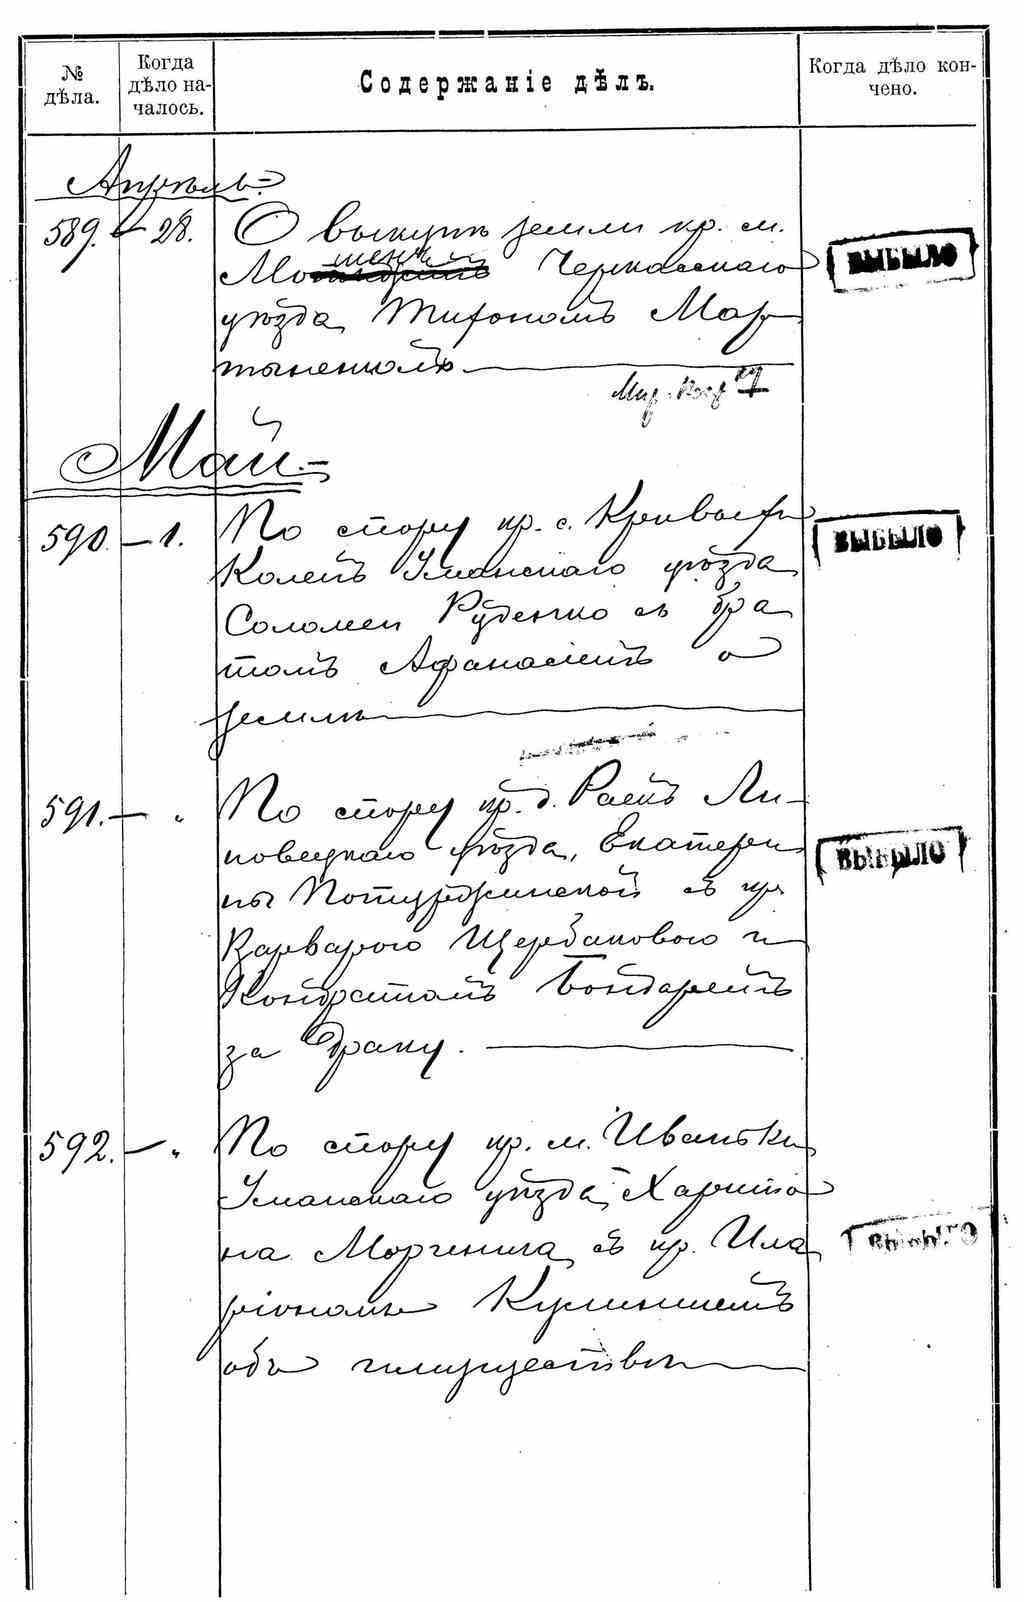 №
дѣла.
Когда
дѣло на-
чалось.
Содержаніе дѣлъ.
Когда дѣло кон-
чено.
Апрѣль
589. — 28. О выкупѣ земли кр. м.
Черкасскаго
уѣзда Тихономъ Мар-
тыненкомъ
ВЫБЫЛО
Май
590. — 1. По спору кр. с. Кривыхъ
Колѣнъ Уманскаго уѣзда
Соломеи Руденко съ бра
томъ Афанасіемъ о
землѣ
ВЫБЫЛО
591. — „ По спору кр. д. Ли-
повецкаго уѣзда, Екатери
ны съ кр.
Варварою Щербаковою и
Кондратомъ Бондаремъ
за драку.
ВЫБЫЛО
592. — „ По спору кр. м. Иваньки
Уманскаго уѣзда Харито
на съ кр. Ила
ріономъ
объ имуществѣ
ВЫБЫЛО